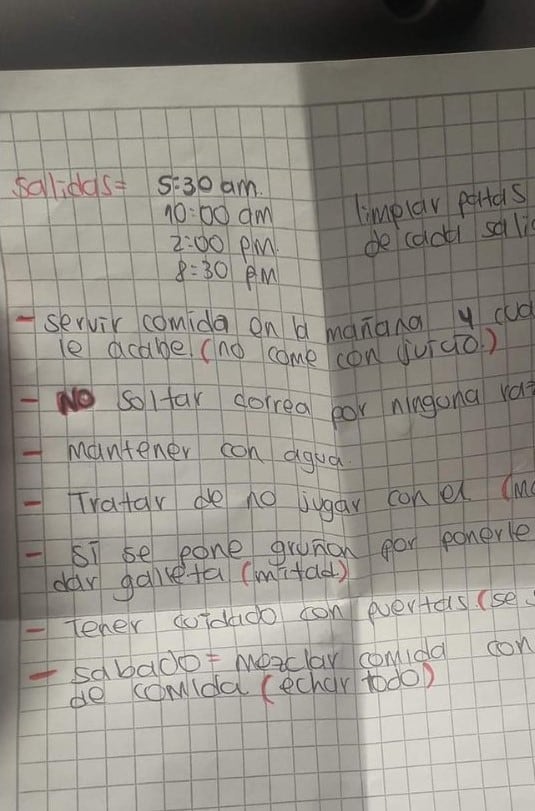 salidas= 5:30 am.
10:00 am
2:00 PM.
8:30 PM
limpiar patas
de cada
- servir comida en la mañana y
le acabe. (no come con juicio.)
- NO soltar correa por ninguna
- mantener con agua.
- Tratar de no jugar con el
- Si se pone gruñon por ponerle
dar galleta (mitad)
- Tener cuidado con puertas (se
- sabado = mezclar comida con
de comida (echar todo)